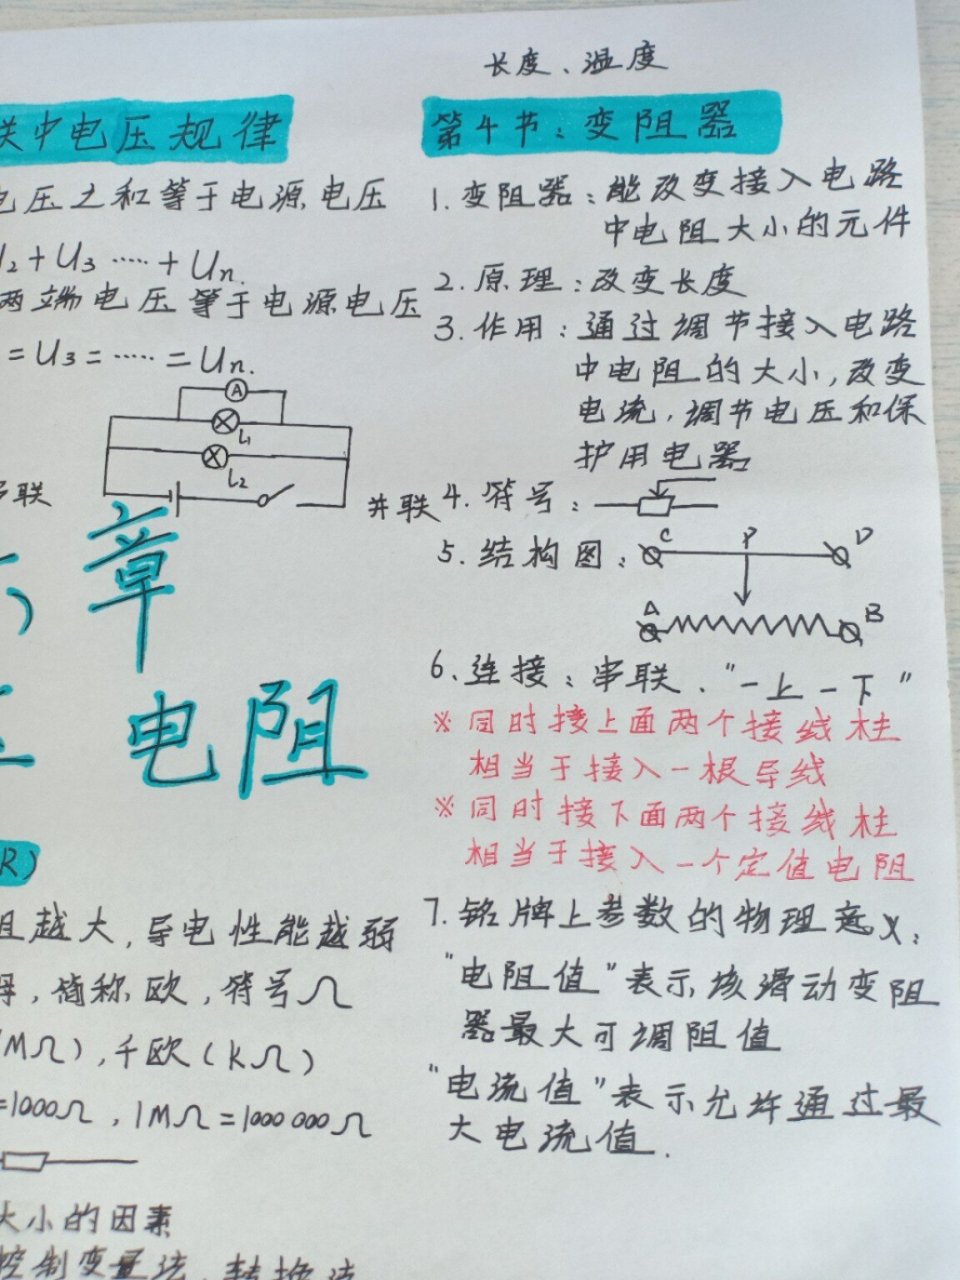 联中电压规律
电压之和等于电源电压
U₂+U₃……+Un.
两端电压等于电源电压
=U₃=……=Un.
A
L₁
L₂
串联
并联
章
电阻
R)
阻越大,导电性能越弱
姆,简称,欧,符号Ω
(MΩ),千欧(kΩ)
=1000Ω,1MΩ=1000 000Ω
大小的因素
控制变量法、转换法
长度、温度
第4节:变阻器
1.变阻器:能改变接入电路
中电阻大小的元件
2.原理:改变长度
3.作用:通过调节接入电路
中电阻的大小,改变
电流,调节电压和保
护用电器
4.符号:
5.结构图:
C P D
A B
6.连接:串联、"一上一下"
※同时接上面两个接线柱
相当于接入一根导线
※同时接下面两个接线柱
相当于接入一个定值电阻
7.铭牌上参数的物理意义:
"电阻值"表示,该滑动变阻
器最大可调阻值
"电流值"表示允许通过最
大电流值.